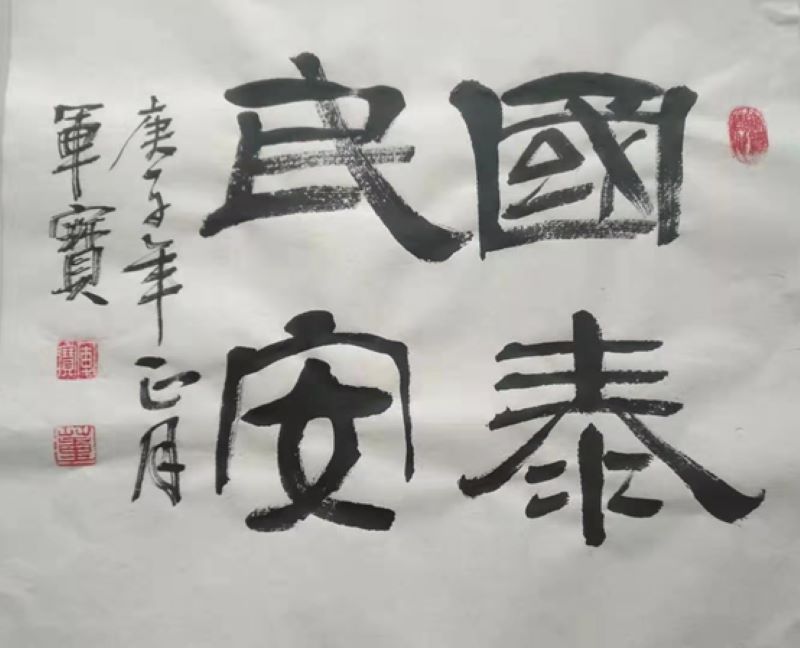 國泰
民安
庚子年正月
軍寶